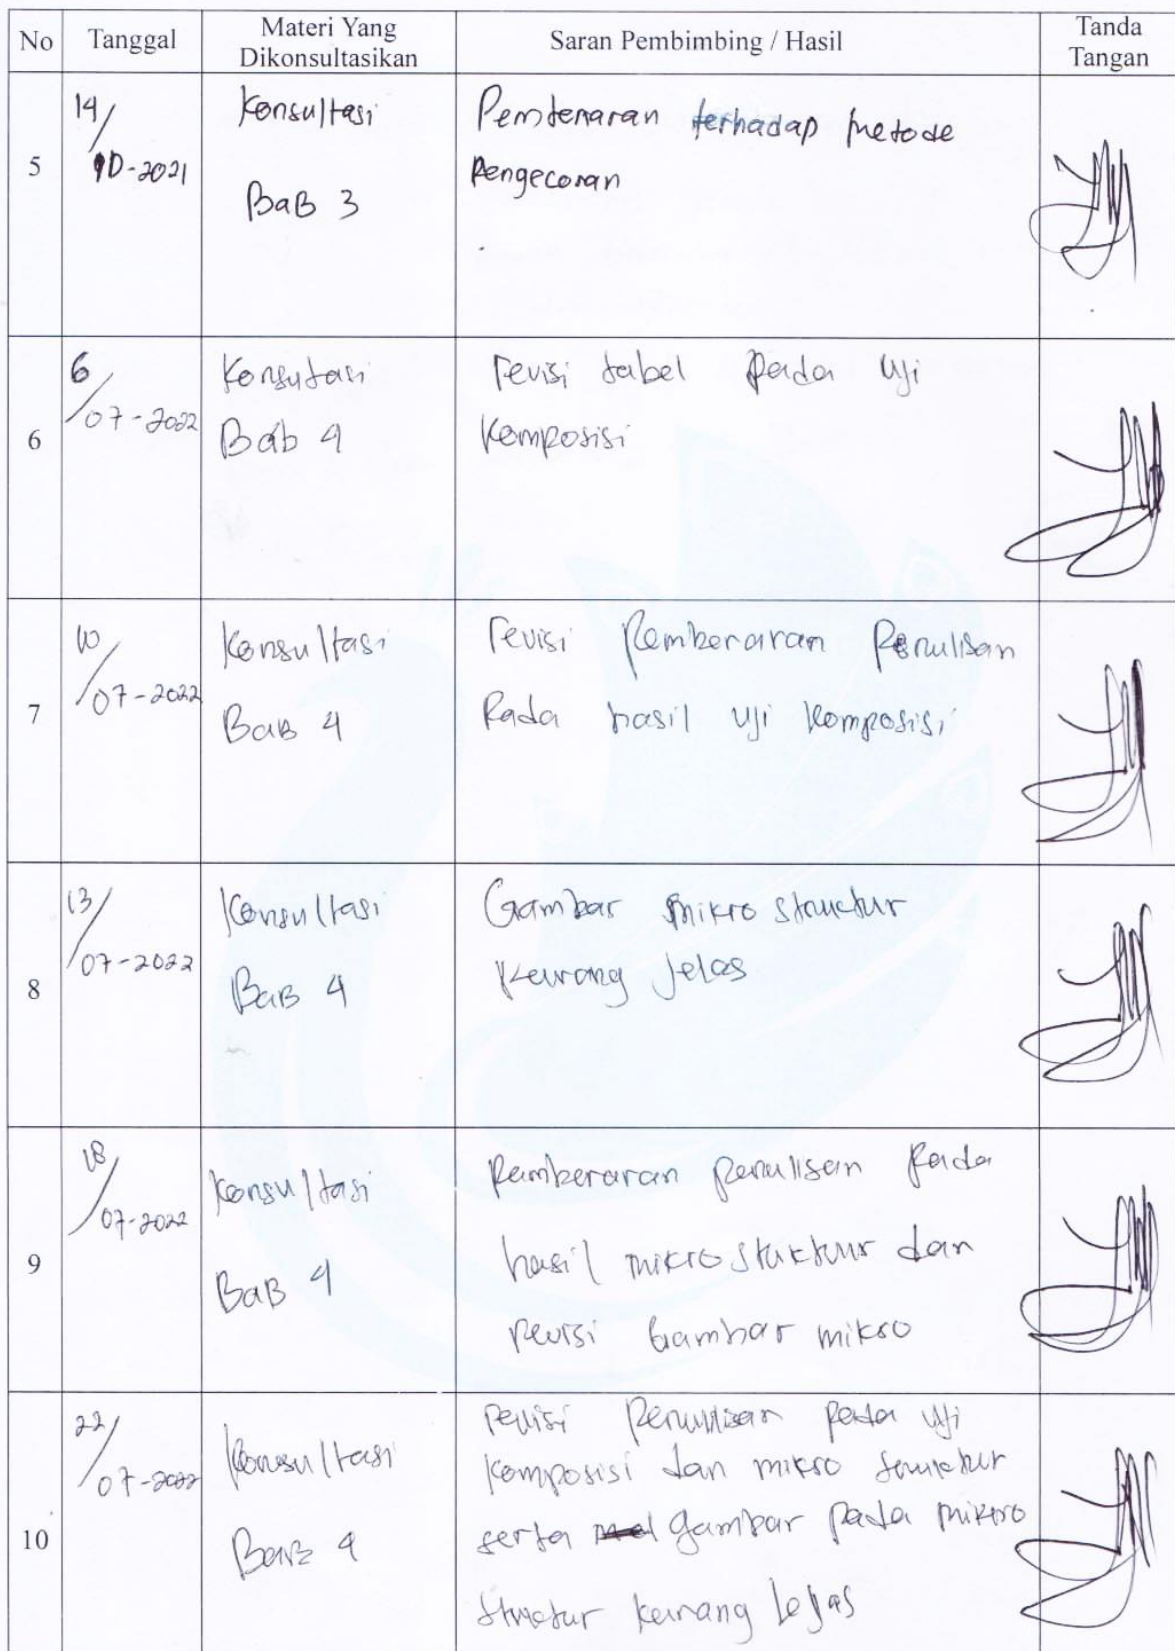 No Tanggal Materi Yang Dikonsultasikan Saran Pembimbing / Hasil Tanda Tangan
5 14/10-2021
Konsultasi
Bab 3
Pembenaran terhadap metode
Pengecoran
6 6/07-2022
Konsutasi
Bab 4
revisi tabel pada uji
komposisi
7 10/07-2022
Konsultasi
Bab 4
revisi Pembenaran Penulisan
Pada hasil uji komposisi
8 13/07-2022
Konsultasi
Bab 4
Gambar mikro structur
kurang jelas
9 18/07-2022
Konsultasi
Bab 4
Pembenaran penulisan pada
hasil mikro stuktur dan
revisi Gambar mikro
10 22/07-2022
Konsultasi
Bab 4
revisi Penulisan pada uji
komposisi dan mikro
serta gambar pada mikro
structur kurang